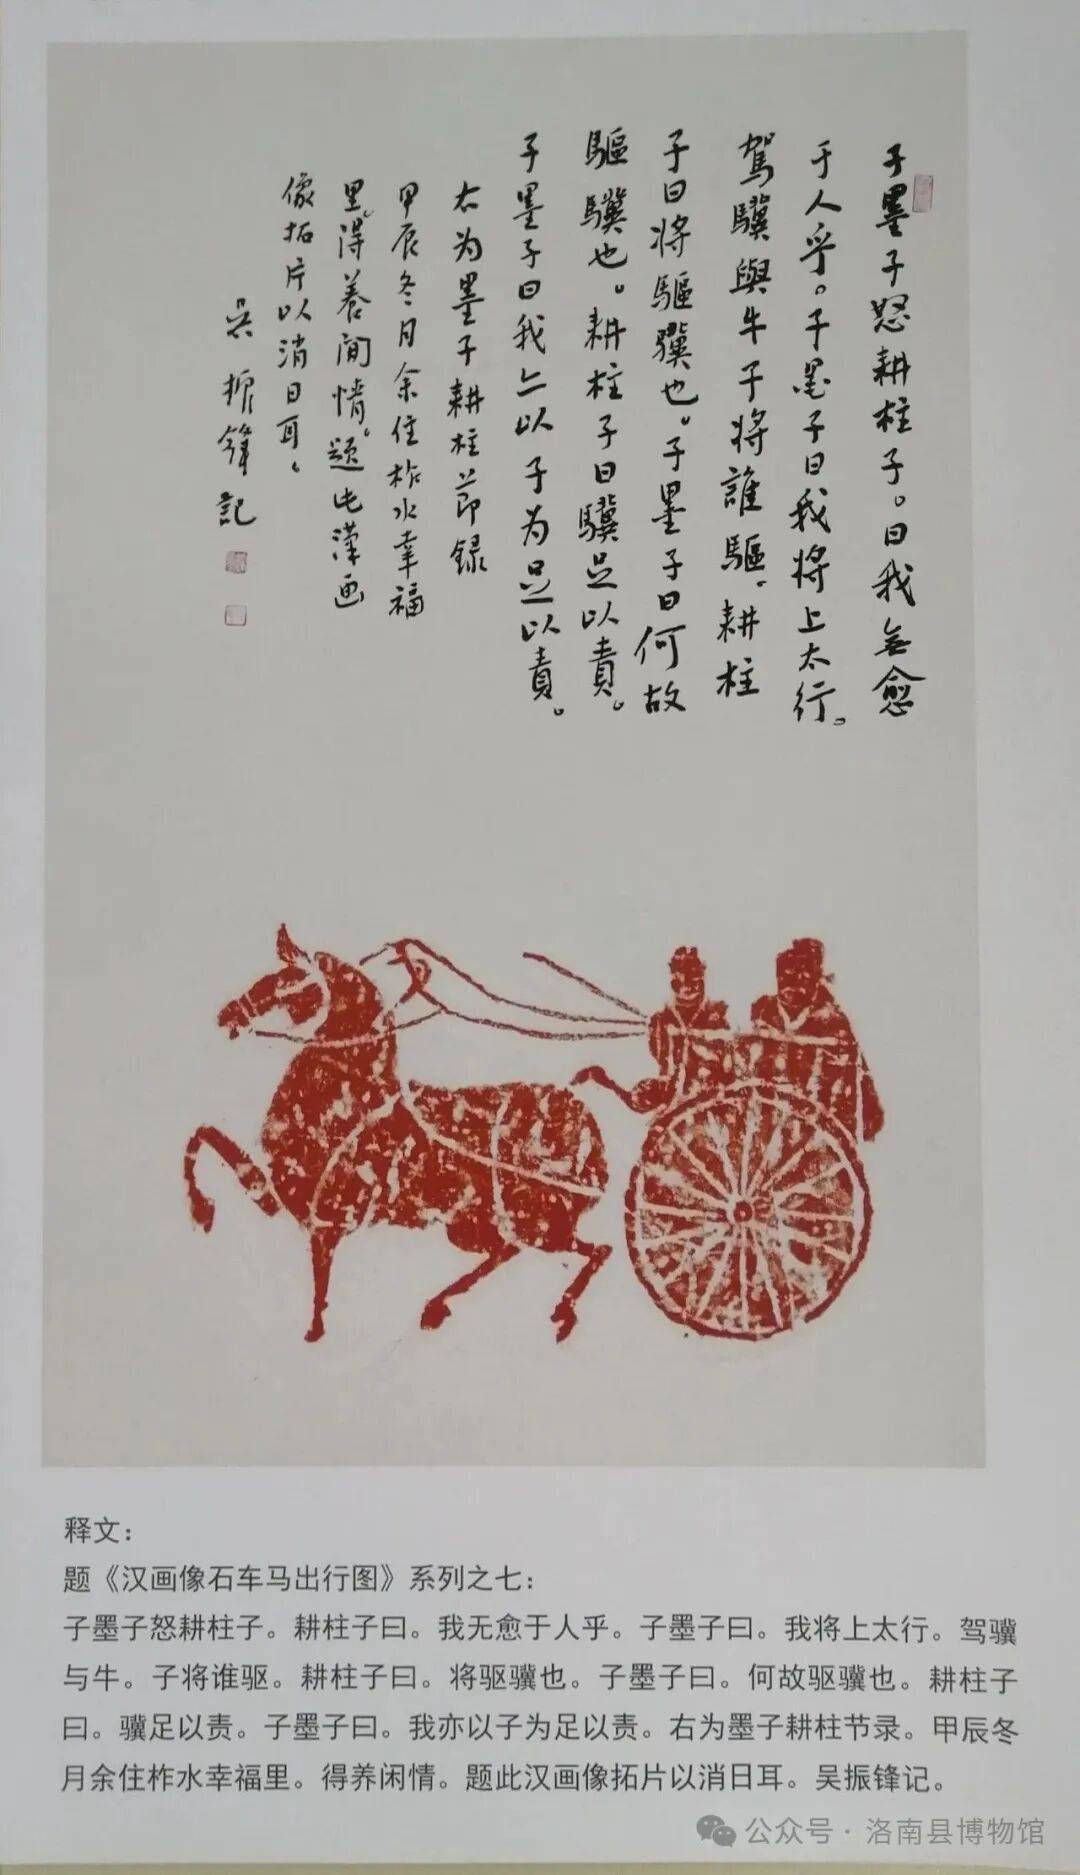 子墨子怒耕柱子。曰我無愈
于人乎。子墨子曰我将上太行。
駕驥與牛子将誰驅。耕柱
子曰将驅驥也。子墨子曰何故
驅驥也。耕柱子曰驥足以責。
子墨子曰我亦以子为足以責。
右为墨子耕柱节録
甲辰冬月余住柞水幸福
里。得養闲情。题此漢画
像拓片以消日耳。
吴振鋒記
释文：
题《汉画像石车马出行图》系列之七：
子墨子怒耕柱子。耕柱子曰。我无愈于人乎。子墨子曰。我将上太行。驾骥
与牛。子将谁驱。耕柱子曰。将驱骥也。子墨子曰。何故驱骥也。耕柱子
曰。骥足以责。子墨子曰。我亦以子为足以责。右为墨子耕柱节录。甲辰冬
月余住柞水幸福里。得养闲情。题此汉画像拓片以消日耳。吴振锋记。
公众号·洛南县博物馆